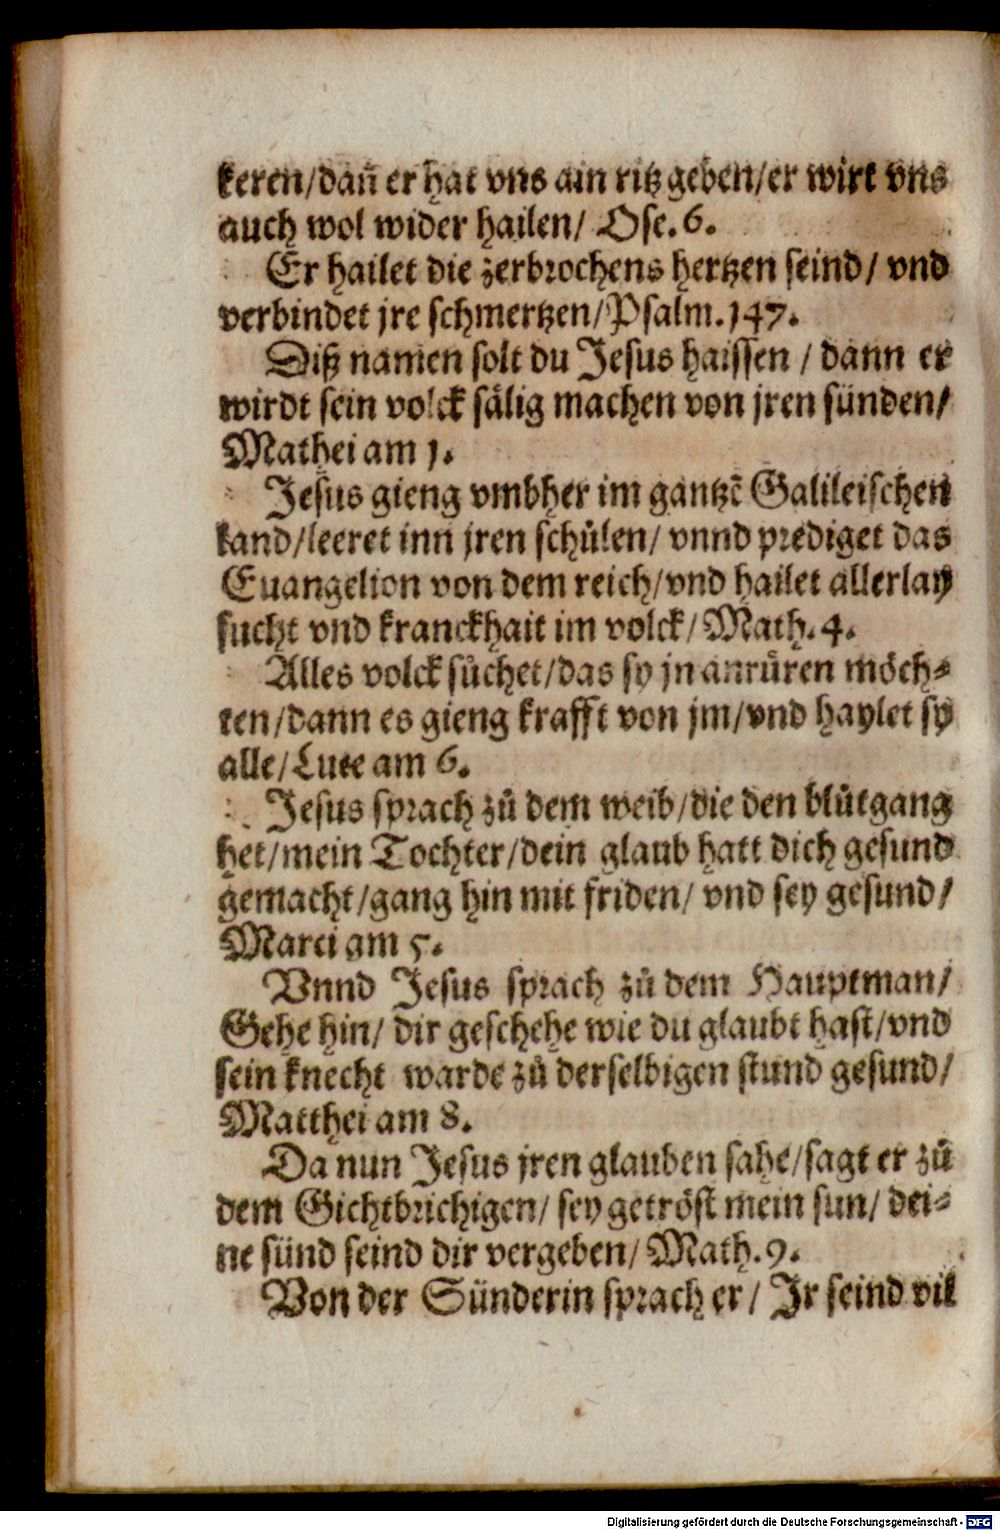 keren/dañ er hat vns ain ritz geben/er wirt vns
auch wol wider hailen/ Ose.6.
Er hailet die zerbrochens hertzen seind/ vnd
verbindet jre schmertzen/Psalm.147.
Diß namen solt du Jesus haissen / dann er
wirdt sein volck sälig machen von jren sünden/
Mathei am 1.
Jesus gieng vmbher im gantzẽ Galileischen
land/leeret inn jren schůlen/ vnnd prediget das
Euangelion von dem reich/vnd hailet allerlay
sucht vnd kranckhait im volck/Math.4.
Alles volck sůchet/das sy jn anrůren möch⸗
ten/dann es gieng krafft von jm/vnd haylet sy
alle/Luce am 6.
Jesus sprach zů dem weib/die den blůtgang
het/mein Tochter/dein glaub hatt dich gesund
gemacht/gang hin mit friden/ vnd sey gesund/
Marci am 5.
Vnnd Jesus sprach zů dem Hauptman/
Gehe hin/ dir geschehe wie du glaubt hast/vnd
sein knecht warde zů derselbigen stund gesund/
Matthei am 8.
Da nun Jesus jren glauben sahe/sagt er zů
dem Gichtbrichigen/ sey getröst mein sun/ dei⸗
ne sünd seind dir vergeben/Math.9.
Von der Sünderin sprach er/ Jr seind vil
Digitalisierung gefördert durch die Deutsche Forschungsgemeinschaft - DFG